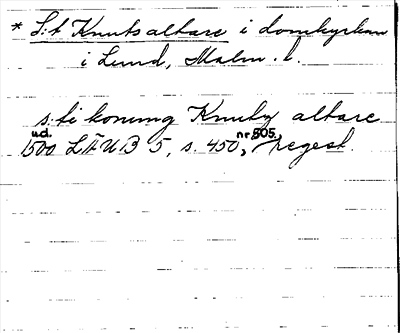 * S:t Knuts altare i domkyrkan
i Lund, Malm. l.
s:ti koning Knutz altare
u.d.
1500 LÄUB 5, s. 450, nr 505, regest.